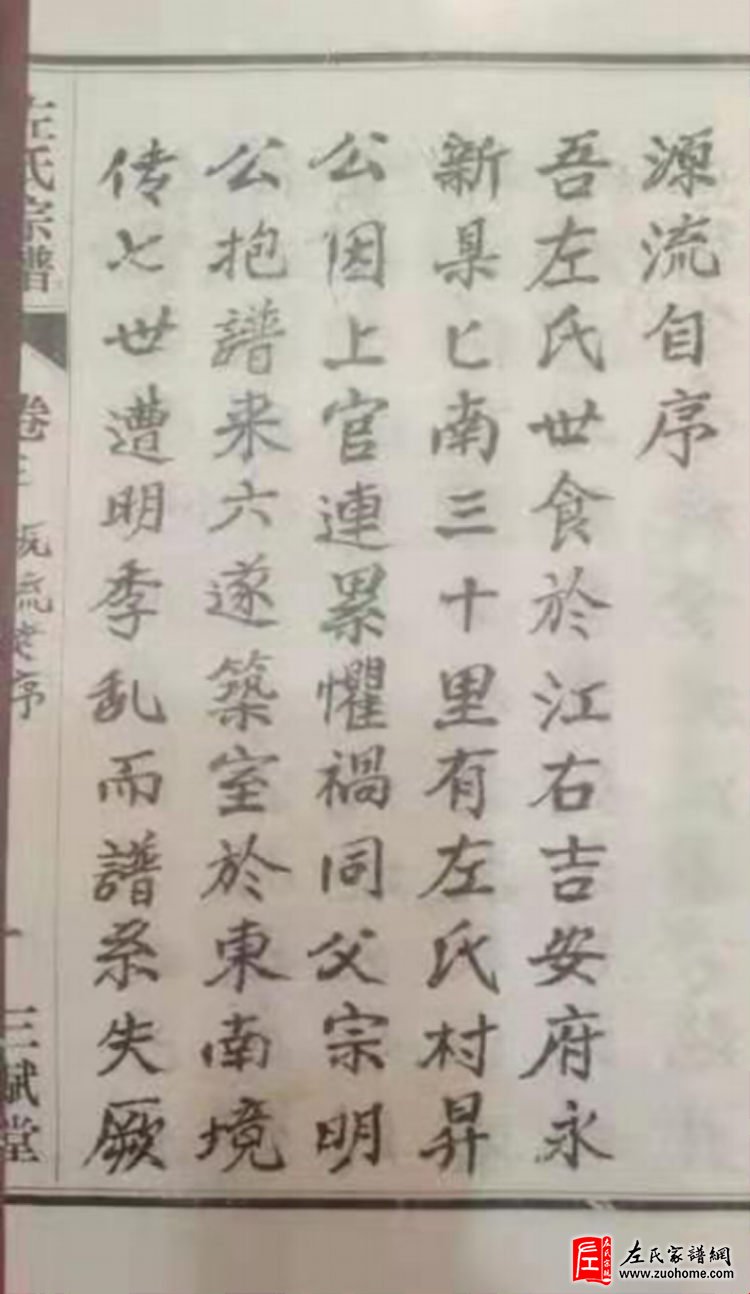 源流自序
吾左氏世食於江右吉安府永
新县匕南三十里有左氏村昇
公因上官連累懼禍同父宗明
公抱譜来六遂築室於東南境
传七世遭明季乱而譜系失厥
左氏宗譜
卷三
流
序
三賦堂
左氏家譜網
www.zuohome.com
左氏宗親